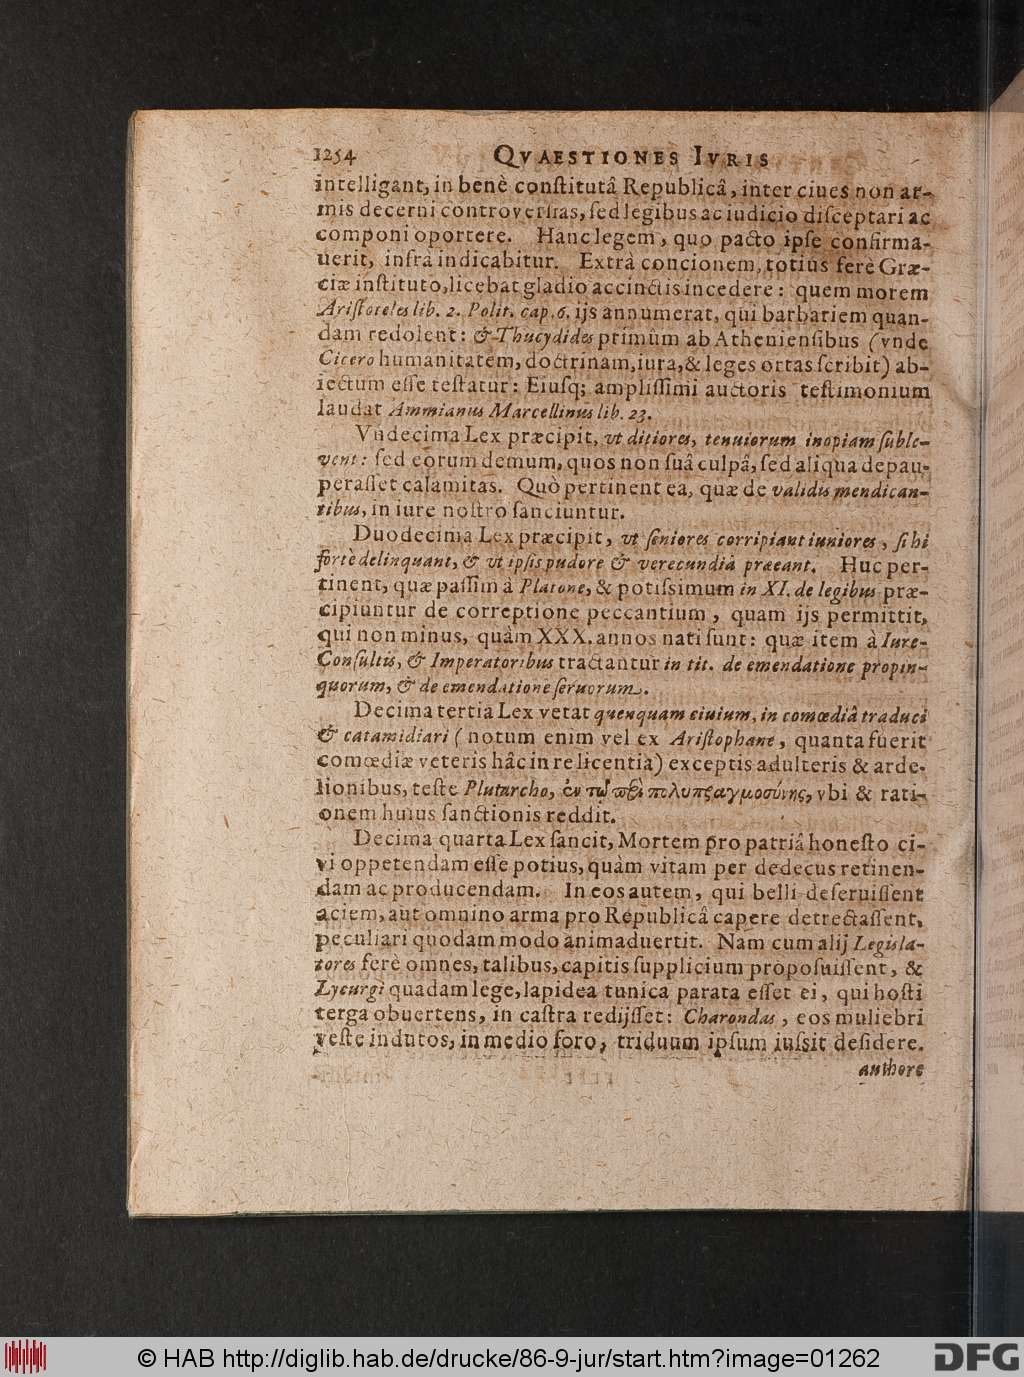 1254 QVAESTIONES IVRIS
intelligant, in benè conſtitutâ Republicâ, inter ciues non ar-
mis decerni controverſias, ſed legibus ac iudicio diſceptari ac
componi oportere. Hanc legem, quo pacto ipſe confirma-
uerit, infrà indicabitur. Extrà concionem, totius ferè Græ-
ciæ inſtituto, licebat gladio accinctis incedere: quem morem
Ariſtoteles lib. 2. Polit. cap. 6. ijs annumerat, qui barbariem quan-
dam redolent: & Thucydides primùm ab Athenienſibus (vnde
Cicero humanitatem, doctrinam, iura, & leges ortas ſcribit) ab-
iectum eſſe teſtatur: Eiuſq; ampliſſimi auctoris teſtimonium
laudat Ammianus Marcellinus lib. 23.
Vndecima Lex præcipit, vt ditiores, tenuiorum inopiam ſuble-
vent: ſed eorum demum, quos non ſuâ culpâ, ſed aliqua depau-
peraſſet calamitas. Quò pertinent ea, quæ de validis mendican-
tibus, in iure noſtro ſanciuntur.
Duodecima Lex præcipit, vt ſeniores corripiant iuniores, ſi hi
fortè delinquant, & vt ipſis pudore & verecundiâ præeant. Huc per-
tinent, quæ paſſim à Platone, & potiſsimum in XI. de legibus præ-
cipiuntur de correptione peccantium, quam ijs permittit,
qui non minus, quàm XXX. annos nati ſunt: quæ item à Iure-
Conſultis, & Imperatoribus tractantur in tit. de emendatione propin-
quorum, & de emendatione ſeruorum.
Decima tertia Lex vetat quenquam ciuium, in comœdiâ traduci
& catamidiari (notum enim vel ex Ariſtophane, quanta fuerit
comœdiæ veteris hâc in re licentia) exceptis adulteris & arde-
lionibus, teſte Plutarcho, ἐν τῷ περὶ πολυπραγμοσύνης, vbi & rati-
onem huius ſanctionis reddit.
Decima quarta Lex ſancit, Mortem pro patriâ honeſto ci-
vi oppetendam eſſe potius, quàm vitam per dedecus retinen-
dam ac producendam. In eos autem, qui belli deſeruiſſent
aciem, aut omnino arma pro Republicâ capere detrectaſſent,
peculiari quodam modo animaduertit. Nam cum alij Legisla-
tores ferè omnes, talibus, capitis ſupplicium propoſuiſſent, &
Lycurgi quadam lege, lapidea tunica parata eſſet ei, qui hoſti
terga obuertens, in caſtra redijſſet: Charondas, eos muliebri
veſte indutos, in medio foro, triduum ipſum iuſsit deſidere.
authore
© HAB http://diglib.hab.de/drucke/86-9-jur/start.htm?image=01262
DFG